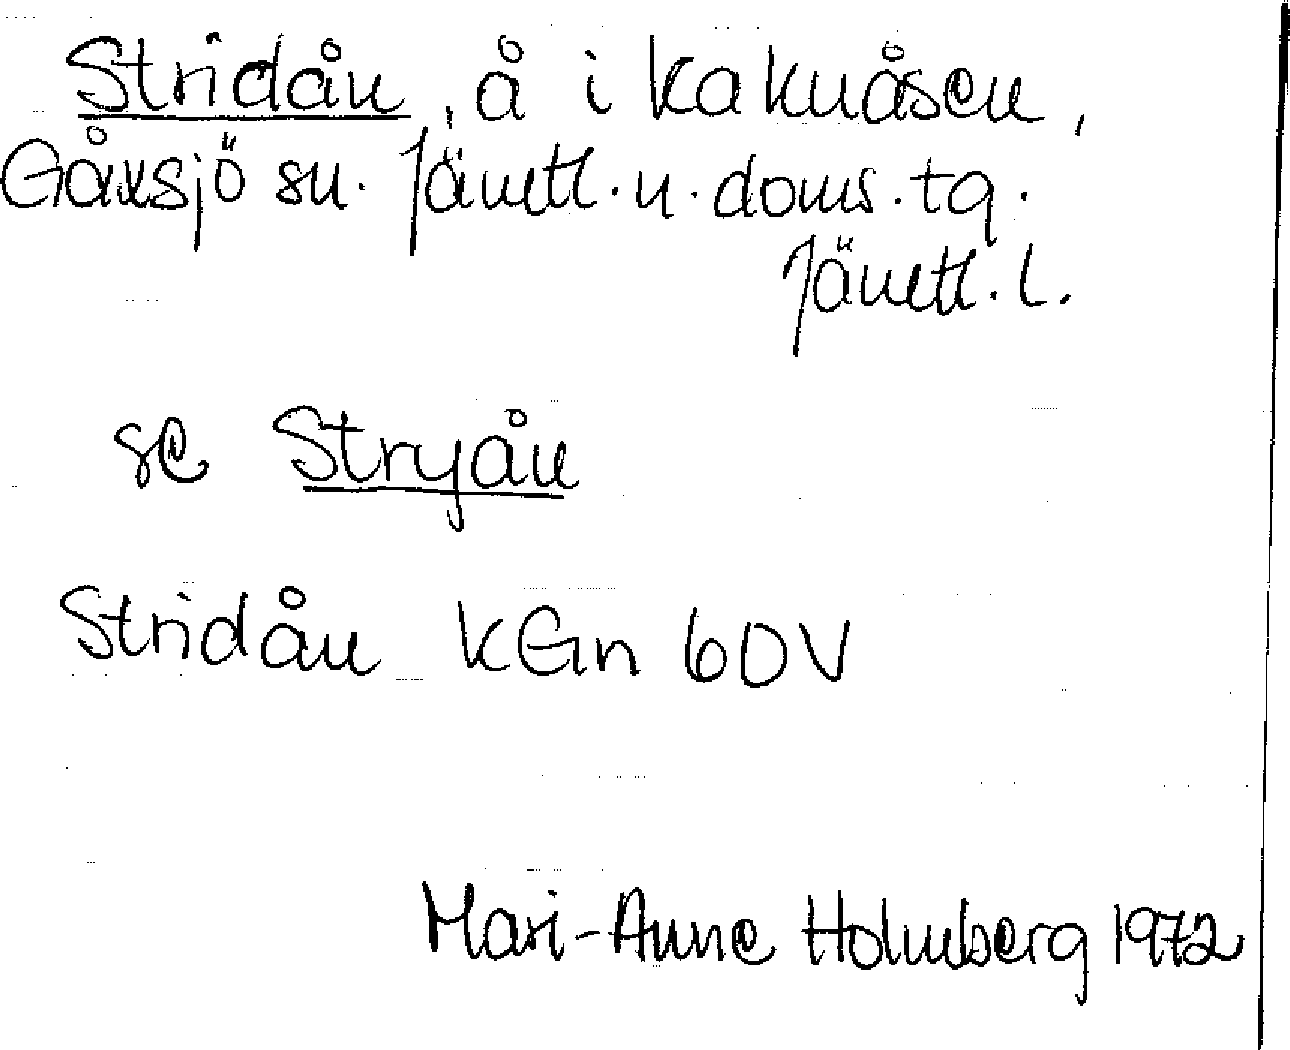 Stridån, å i Kaknåsen,
Gåxsjö sn. Jämtl. n. doms. tg.
Jämtl. l.
se Stryån
Stridån KGn 60V
Mari-Anne Holmberg 1972